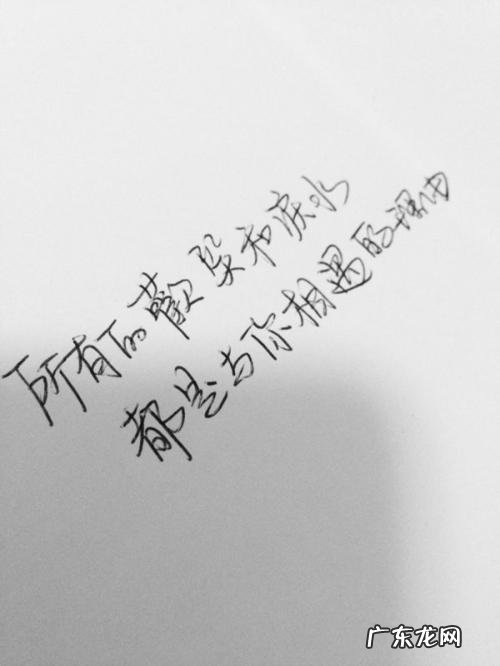 所有的歡樂和淚水
都是与你相遇的理由
广东龙网